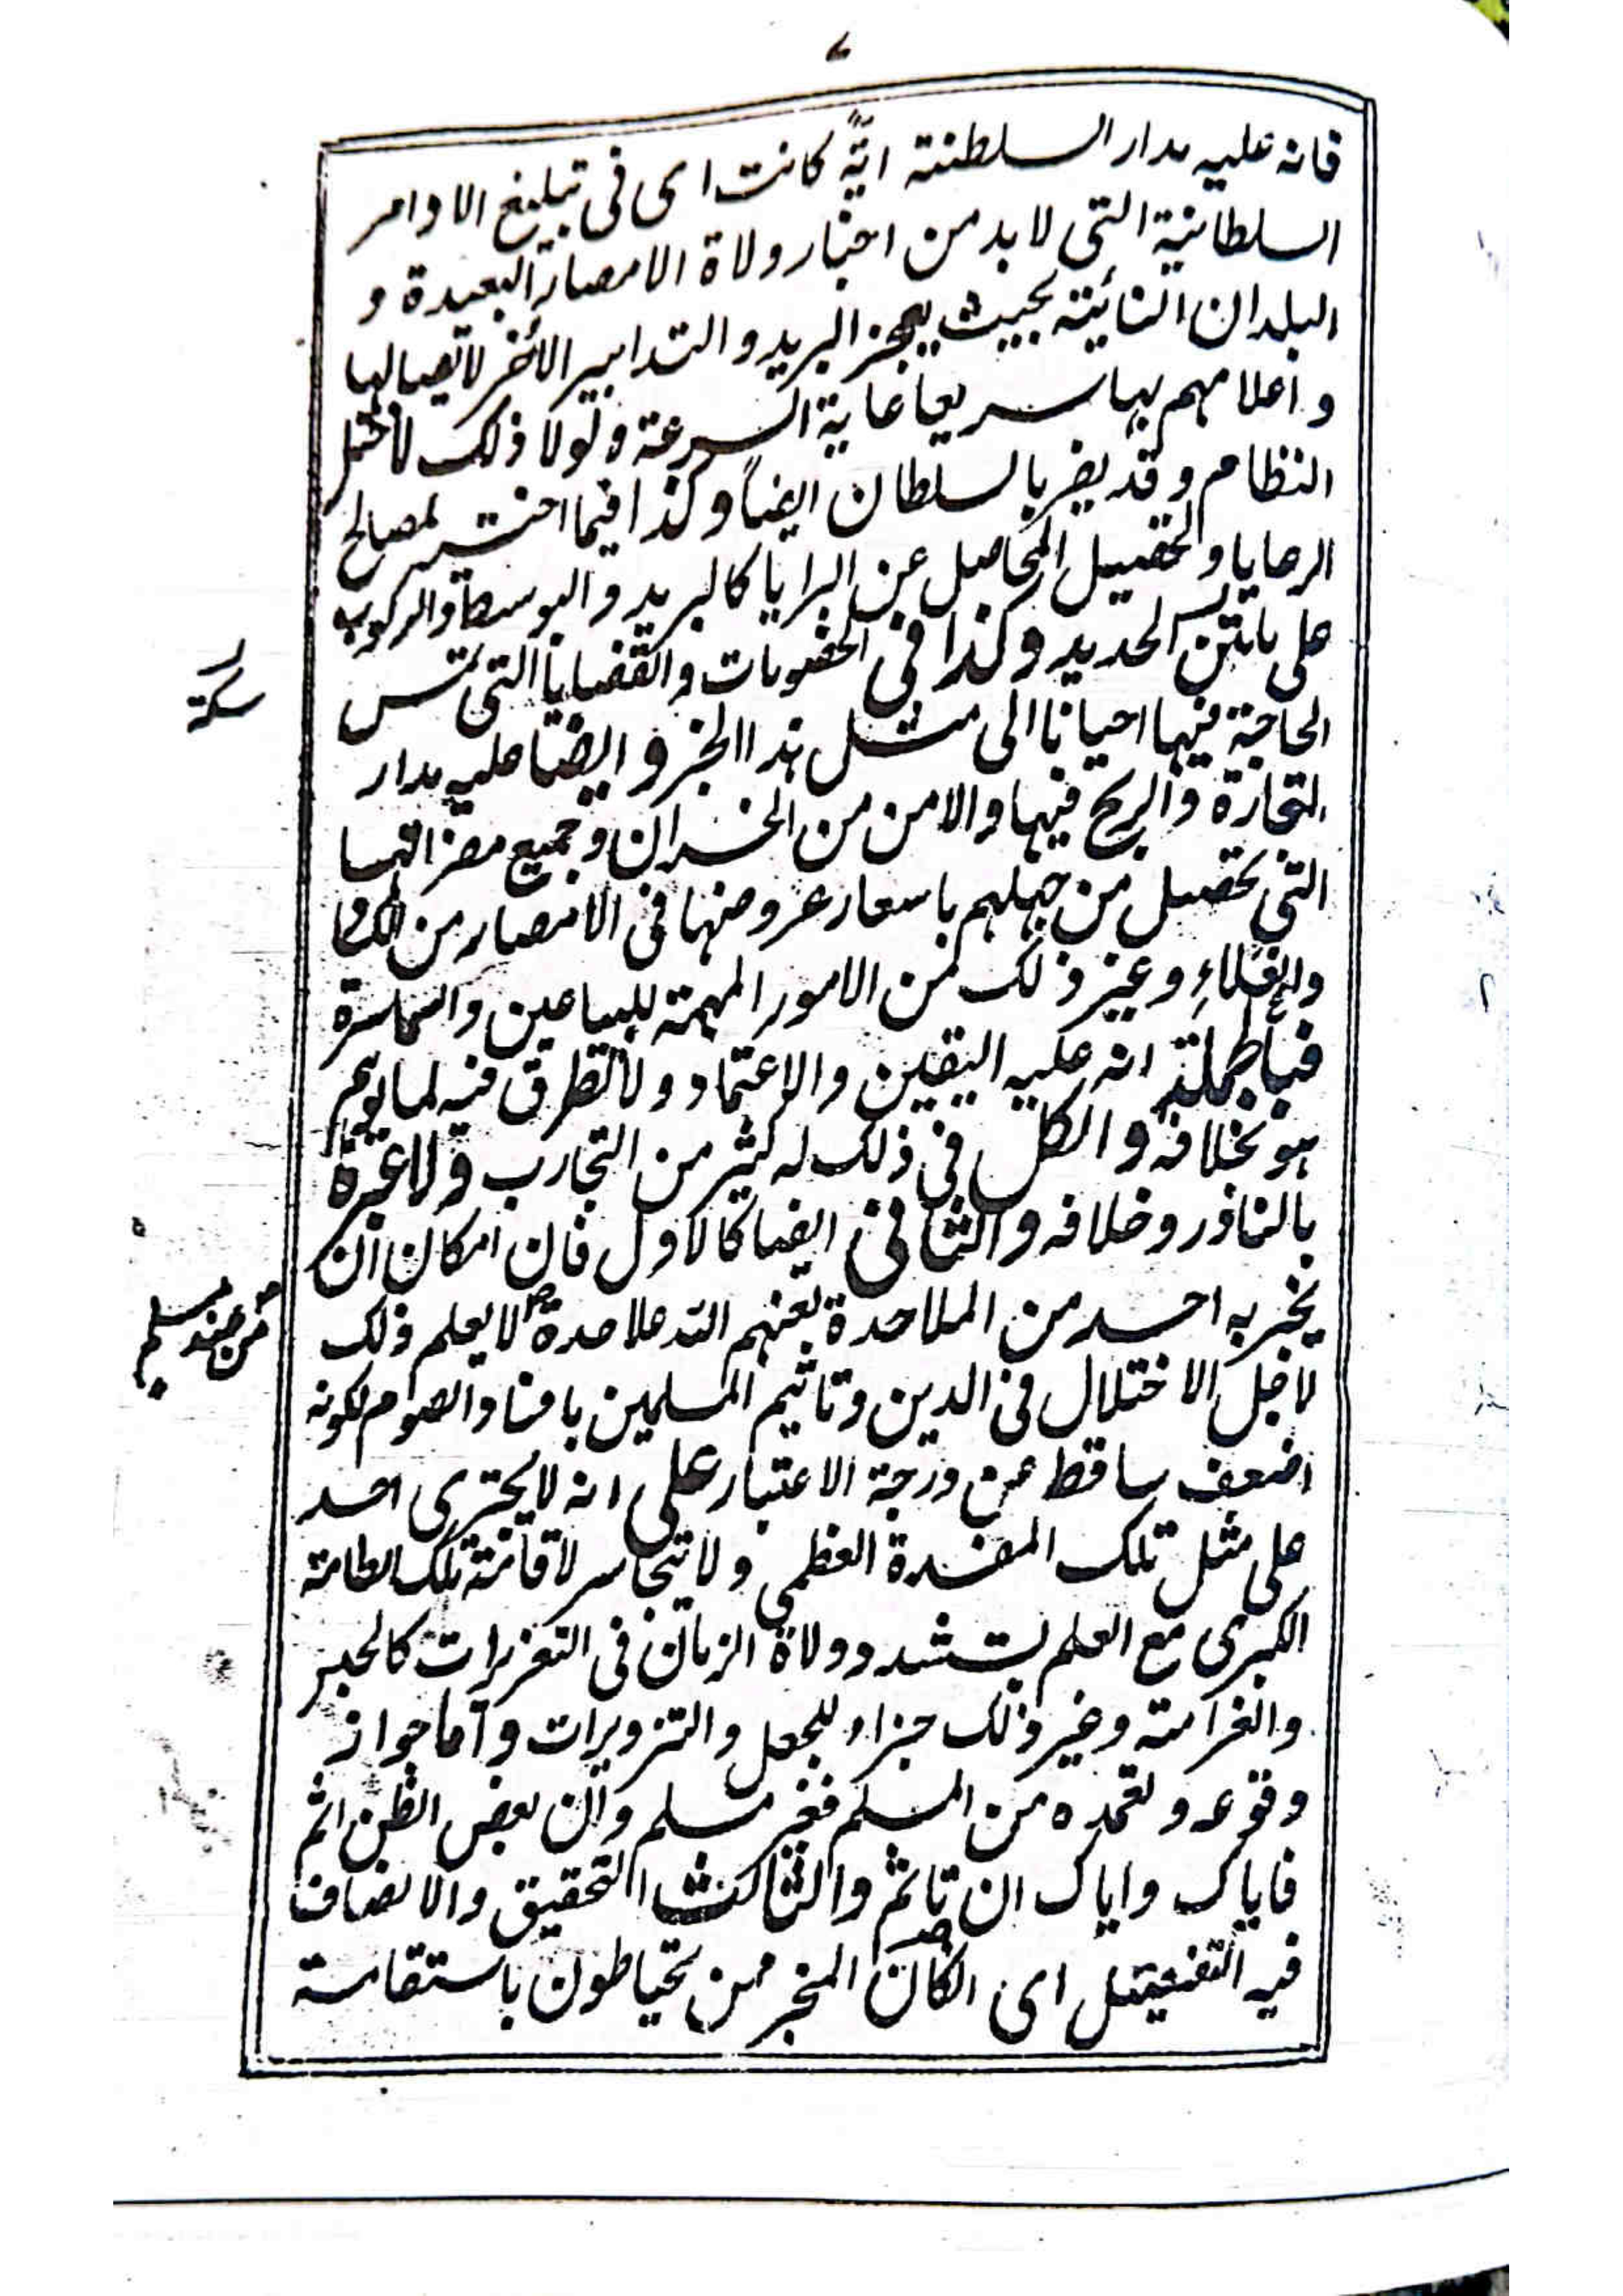 فانه عليه مدار السلطنة ايّةً كانت اى فى تبليغ الاوامر
السلطانية التى لا بد من اخبار ولاة الامصار البعيدة و
البلدان النائية بحيث يعجز البريد و التدابير الأخر لايصالها
و اعلامهم بها سريعا غاية السرعة ولولا ذلك لاختل
النظام و قد يضر بالسلطان ايضاً و كذا فيما اخترع لمصالح
الرعايا و لتحصيل المحاصل عن البرايا كالبريد و البوسطة والركوب
على بابتن الحديد و كذا فى الخصومات و القضايا التى تمس
سكة
الحاجة فيها احيانا الى مثل هذا الخبر و ايضا عليه مدار
التجارة و الربح فيها و الامن من الخسران و جميع مضراتها
التى تحصل من جهلهم باسعار عروضها فى الامصار من
والغلاءِ و غير ذلك من الامور المهمة للبياعين والسماسرة
فبالجملة انه عليه اليقين و الاعتماد و لا تطرق فيه لما يوهم
هو بخلافه و الكل فى ذلك له كثير من التجارب و لا عبرة
بالنادر و خلافه و الثانى ايضا كالاول فان امكان ان
يخبر به احد من الملاحدة لعنهم الله ملاحدة لا يعلم ذلك
من عند مسلم
لاجل الاختلال فى الدين و تاثيم المسلمين بافساد الصوم لكونه
اضعف ساقط عن درجة الاعتبار على انه لا يجترى احد
على مثل تلك المفسدة العظمى و لا يتجاسر لاقامة تلك الطامة
الكبرى مع العلم بتشدد ولاة الزمان فى التعزيرات كالحبس
و الغرامة و غير ذلك جزاء للجعل و التزويرات و اما جواز
وقوعه و تعمده من المسلم فغير مسلم و ان بعض الظن اثم
فاياك و اياك ان تاثم و الثالث التحقيق و الانصاف
فيه التفصيل اى ان كان المخبر ممن يحتاطون باستقامة